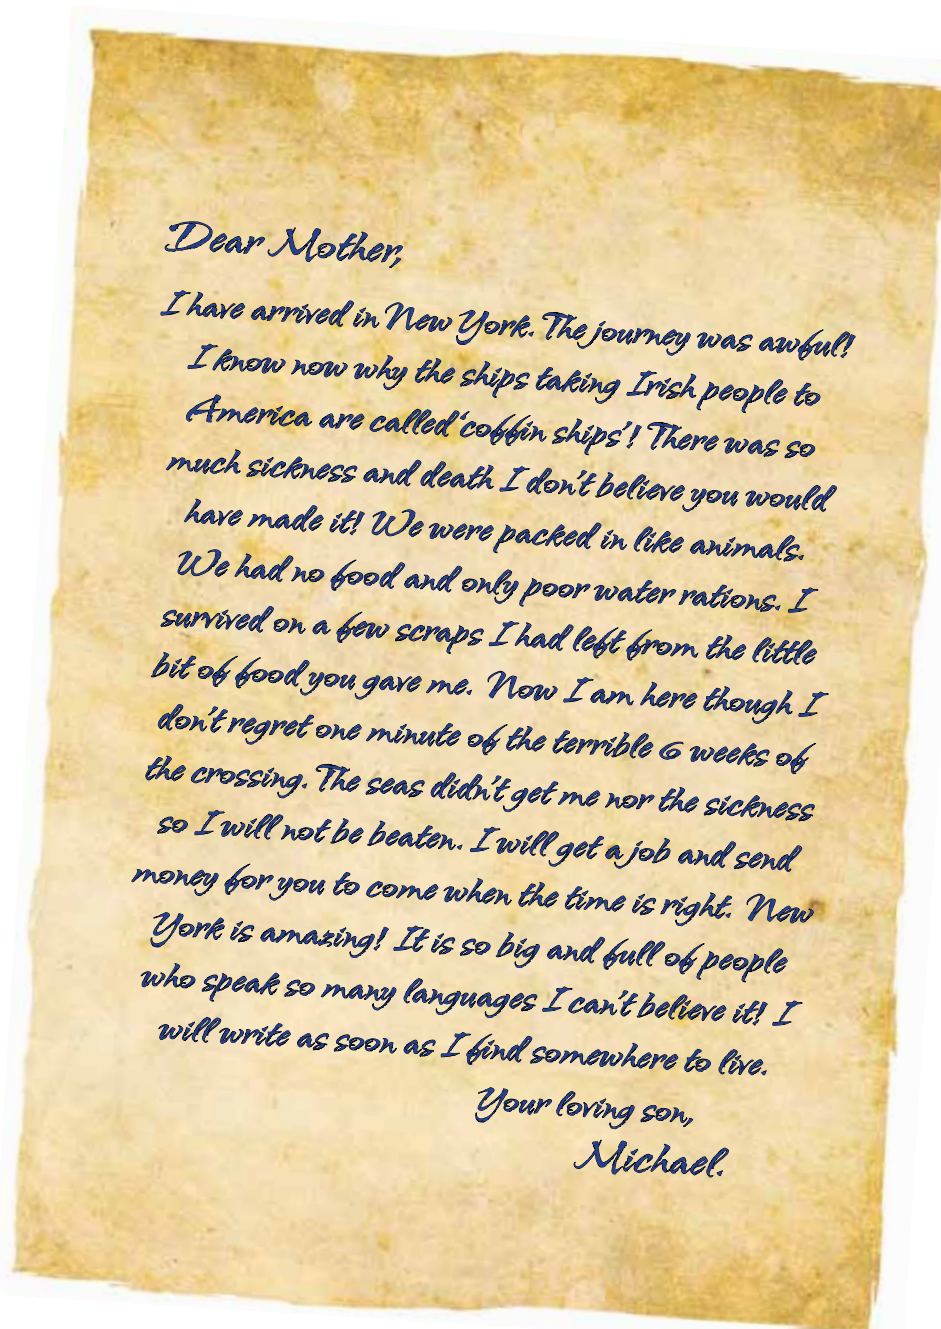 Dear Mother,
I have arrived in New York. The journey was awful!
I know now why the ships taking Irish people to
America are called 'coffin ships'! There was so
much sickness and death I don't believe you would
have made it! We were packed in like animals.
We had no food and only poor water rations. I
survived on a few scraps I had left from the little
bit of food you gave me. Now I am here though I
don't regret one minute of the terrible 6 weeks of
the crossing. The seas didn't get me nor the sickness
so I will not be beaten. I will get a job and send
money for you to come when the time is right. New
York is amazing! It is so big and full of people
who speak so many languages I can't believe it! I
will write as soon as I find somewhere to live.
Your loving son,
Michael.